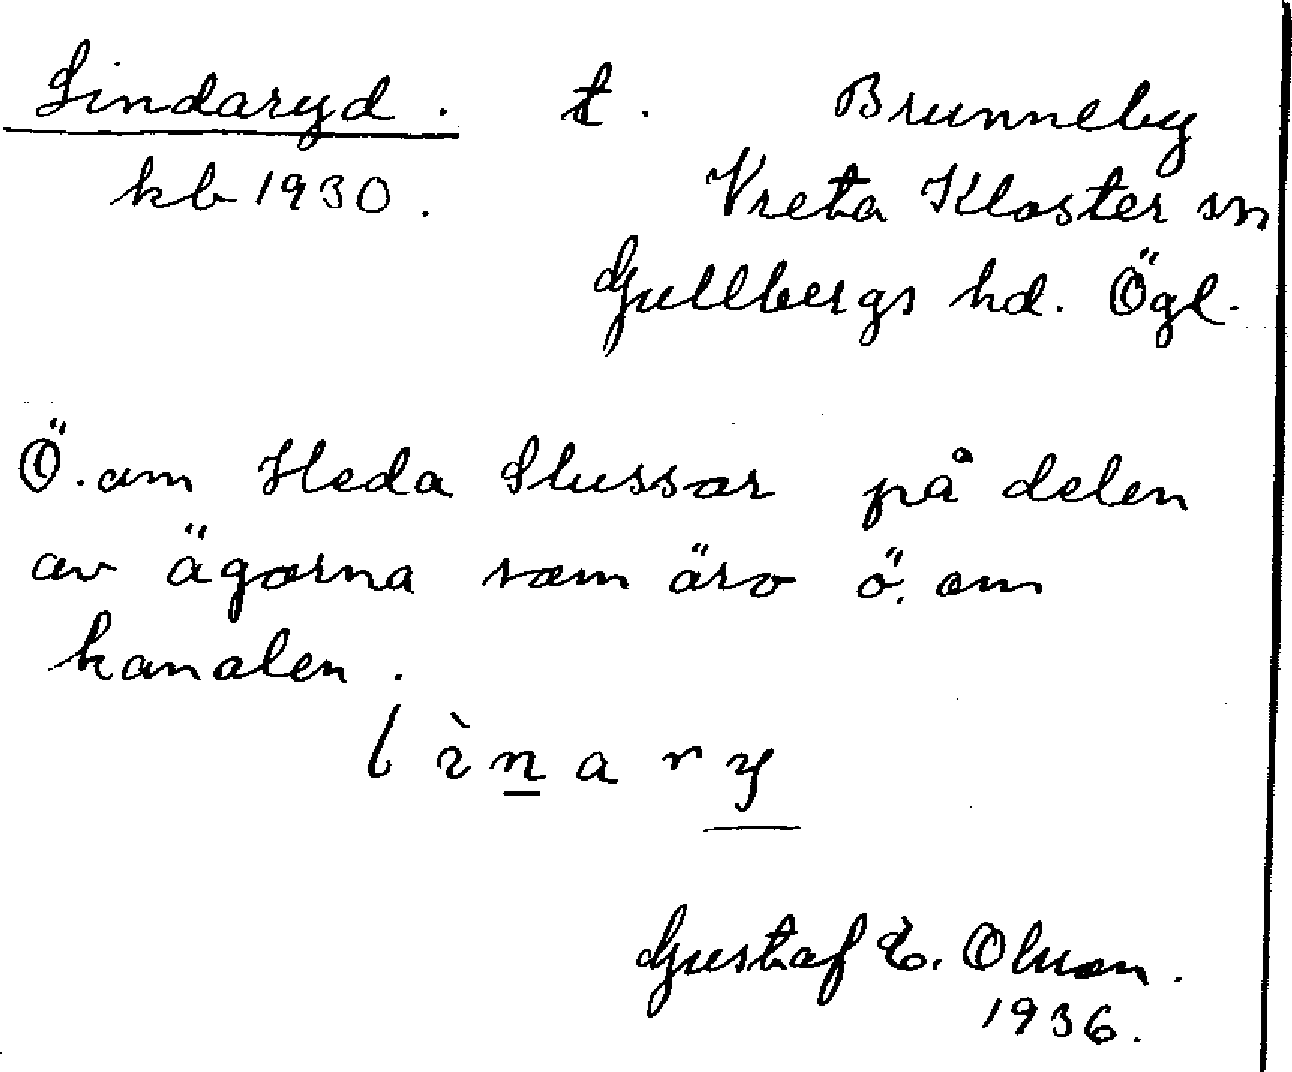 Lindaryd. t. Brunneby
kb 1930. Vreta Kloster sn
Gullbergs hd. Ögl.
Ö. om Heda Slussar på delen
av ägorna som äro ö. om
kanalen.
lìnary
Gustaf E. Olsson.
1936.